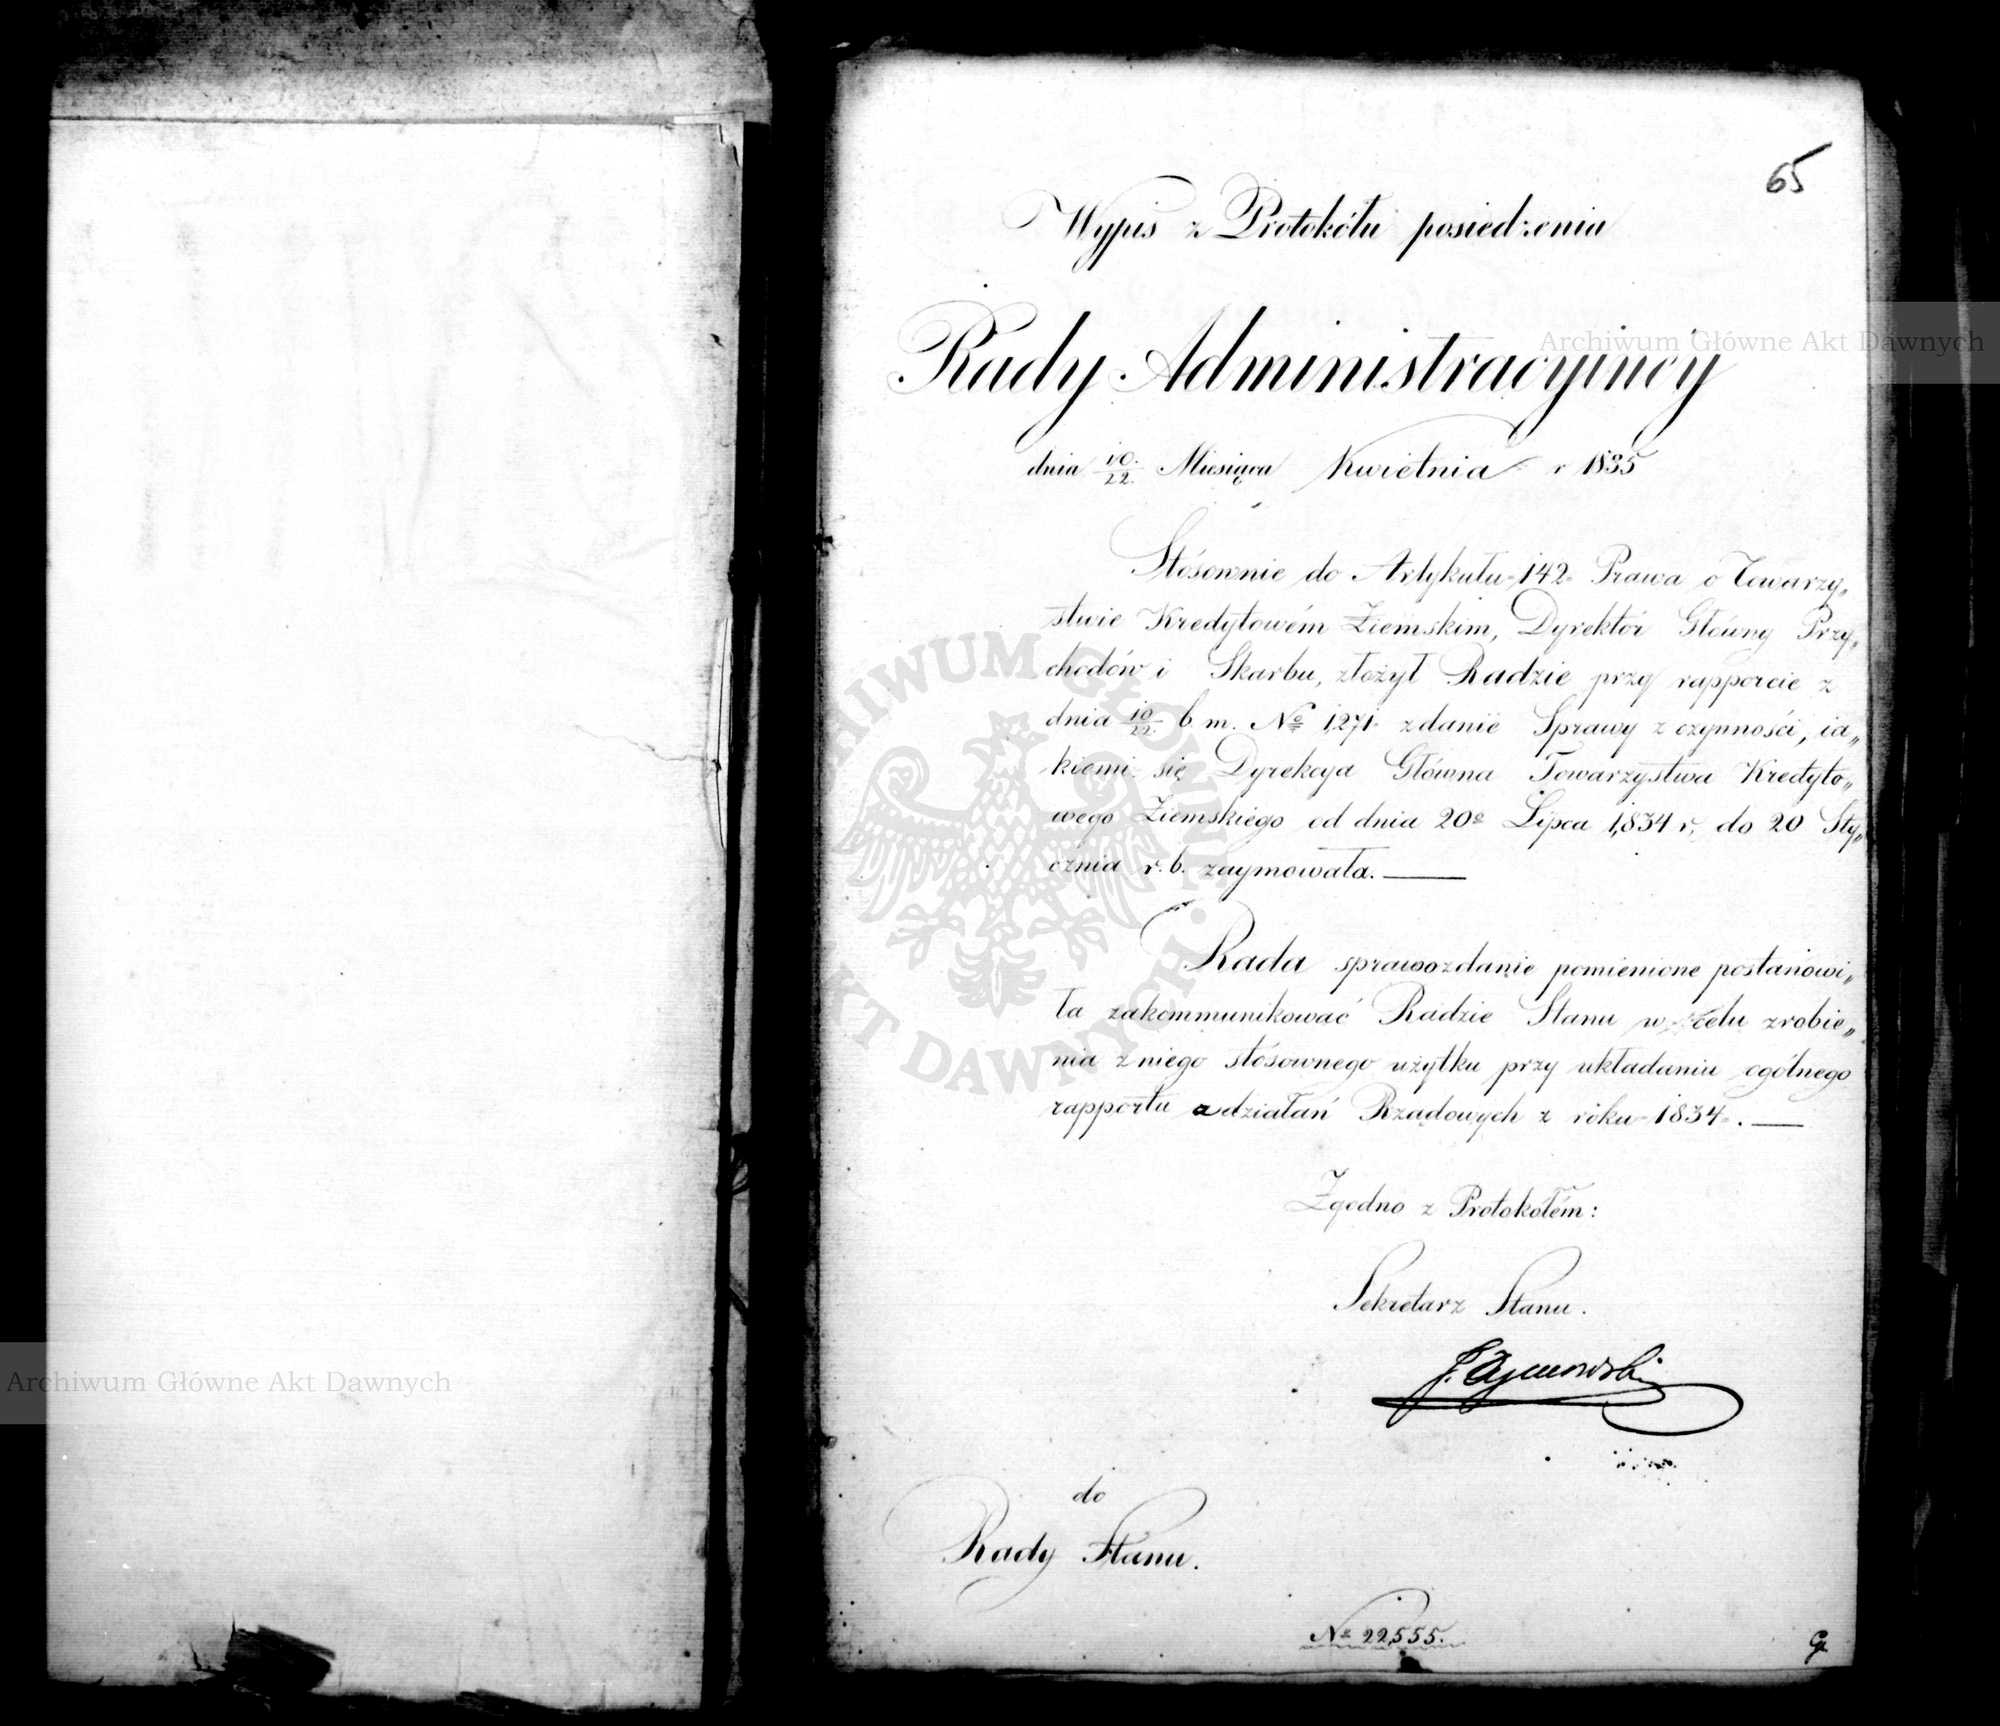 65
Wypis z Protokółu posiedzenia
Rady Administracyiney
dnia 10/22 Miesiąca Kwietnia r 1835
Stósownie do Artykułu 142 Prawa o Towarzy„
stwie Kredytowém Ziemskim, Dyrektor Główny Przy„
chodów i Skarbu, złożył Radzie przy rapporcie z
dnia 10/22 b. m. No 1,271 zdanie Sprawy z czynności, ia„
kiemi się Dyrekcya Główna Towarzystwa Kredyto„
wego Ziemskiego od dnia 20o Lipca 1,834 r, do 20 Sty„
cznia r. b. zaymowała.
Rada sprawozdanie pomienione postanowi„
ła zakommunikować Radzie Stanu w celu zrobie„
nia z niego stósownego użytku przy układaniu ogólnego
rapportu z działań Rządowych z roku 1834.
Zgodno z Protokółem:
Sekretarz Stanu.
J. Tymowski
do
Rady Stanu.
No 22,555.
Archiwum Główne Akt Dawnych
Archiwum Główne Akt Dawnych
ARCHIWUM GŁÓWNE AKT DAWNYCH